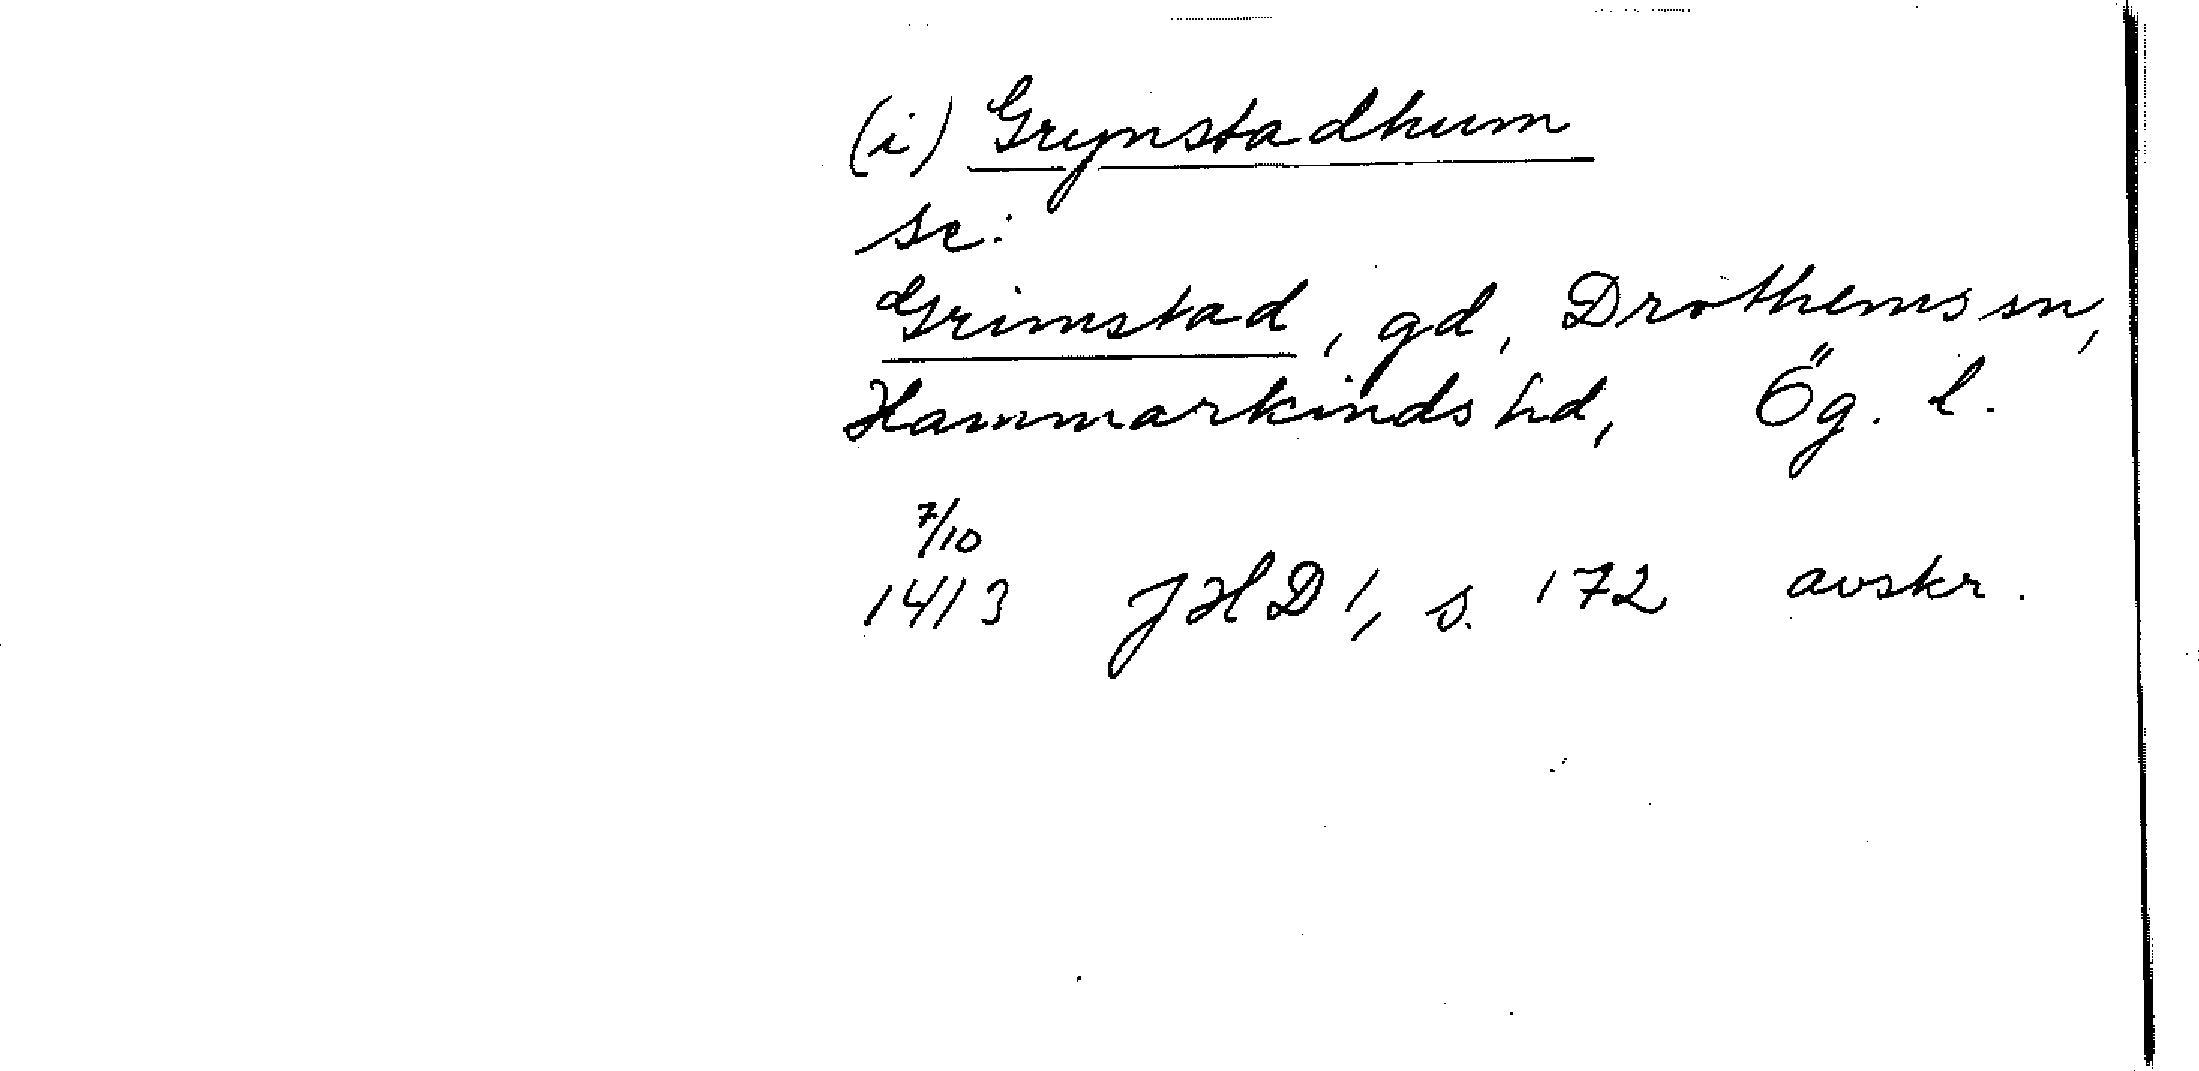 (i) Grynstadhum
sc:
Grimstad, gd, Drothems sn,
Hammarkinds hd, Ög. l.
7/10
1413 JHD 1, s. 172 avskr.